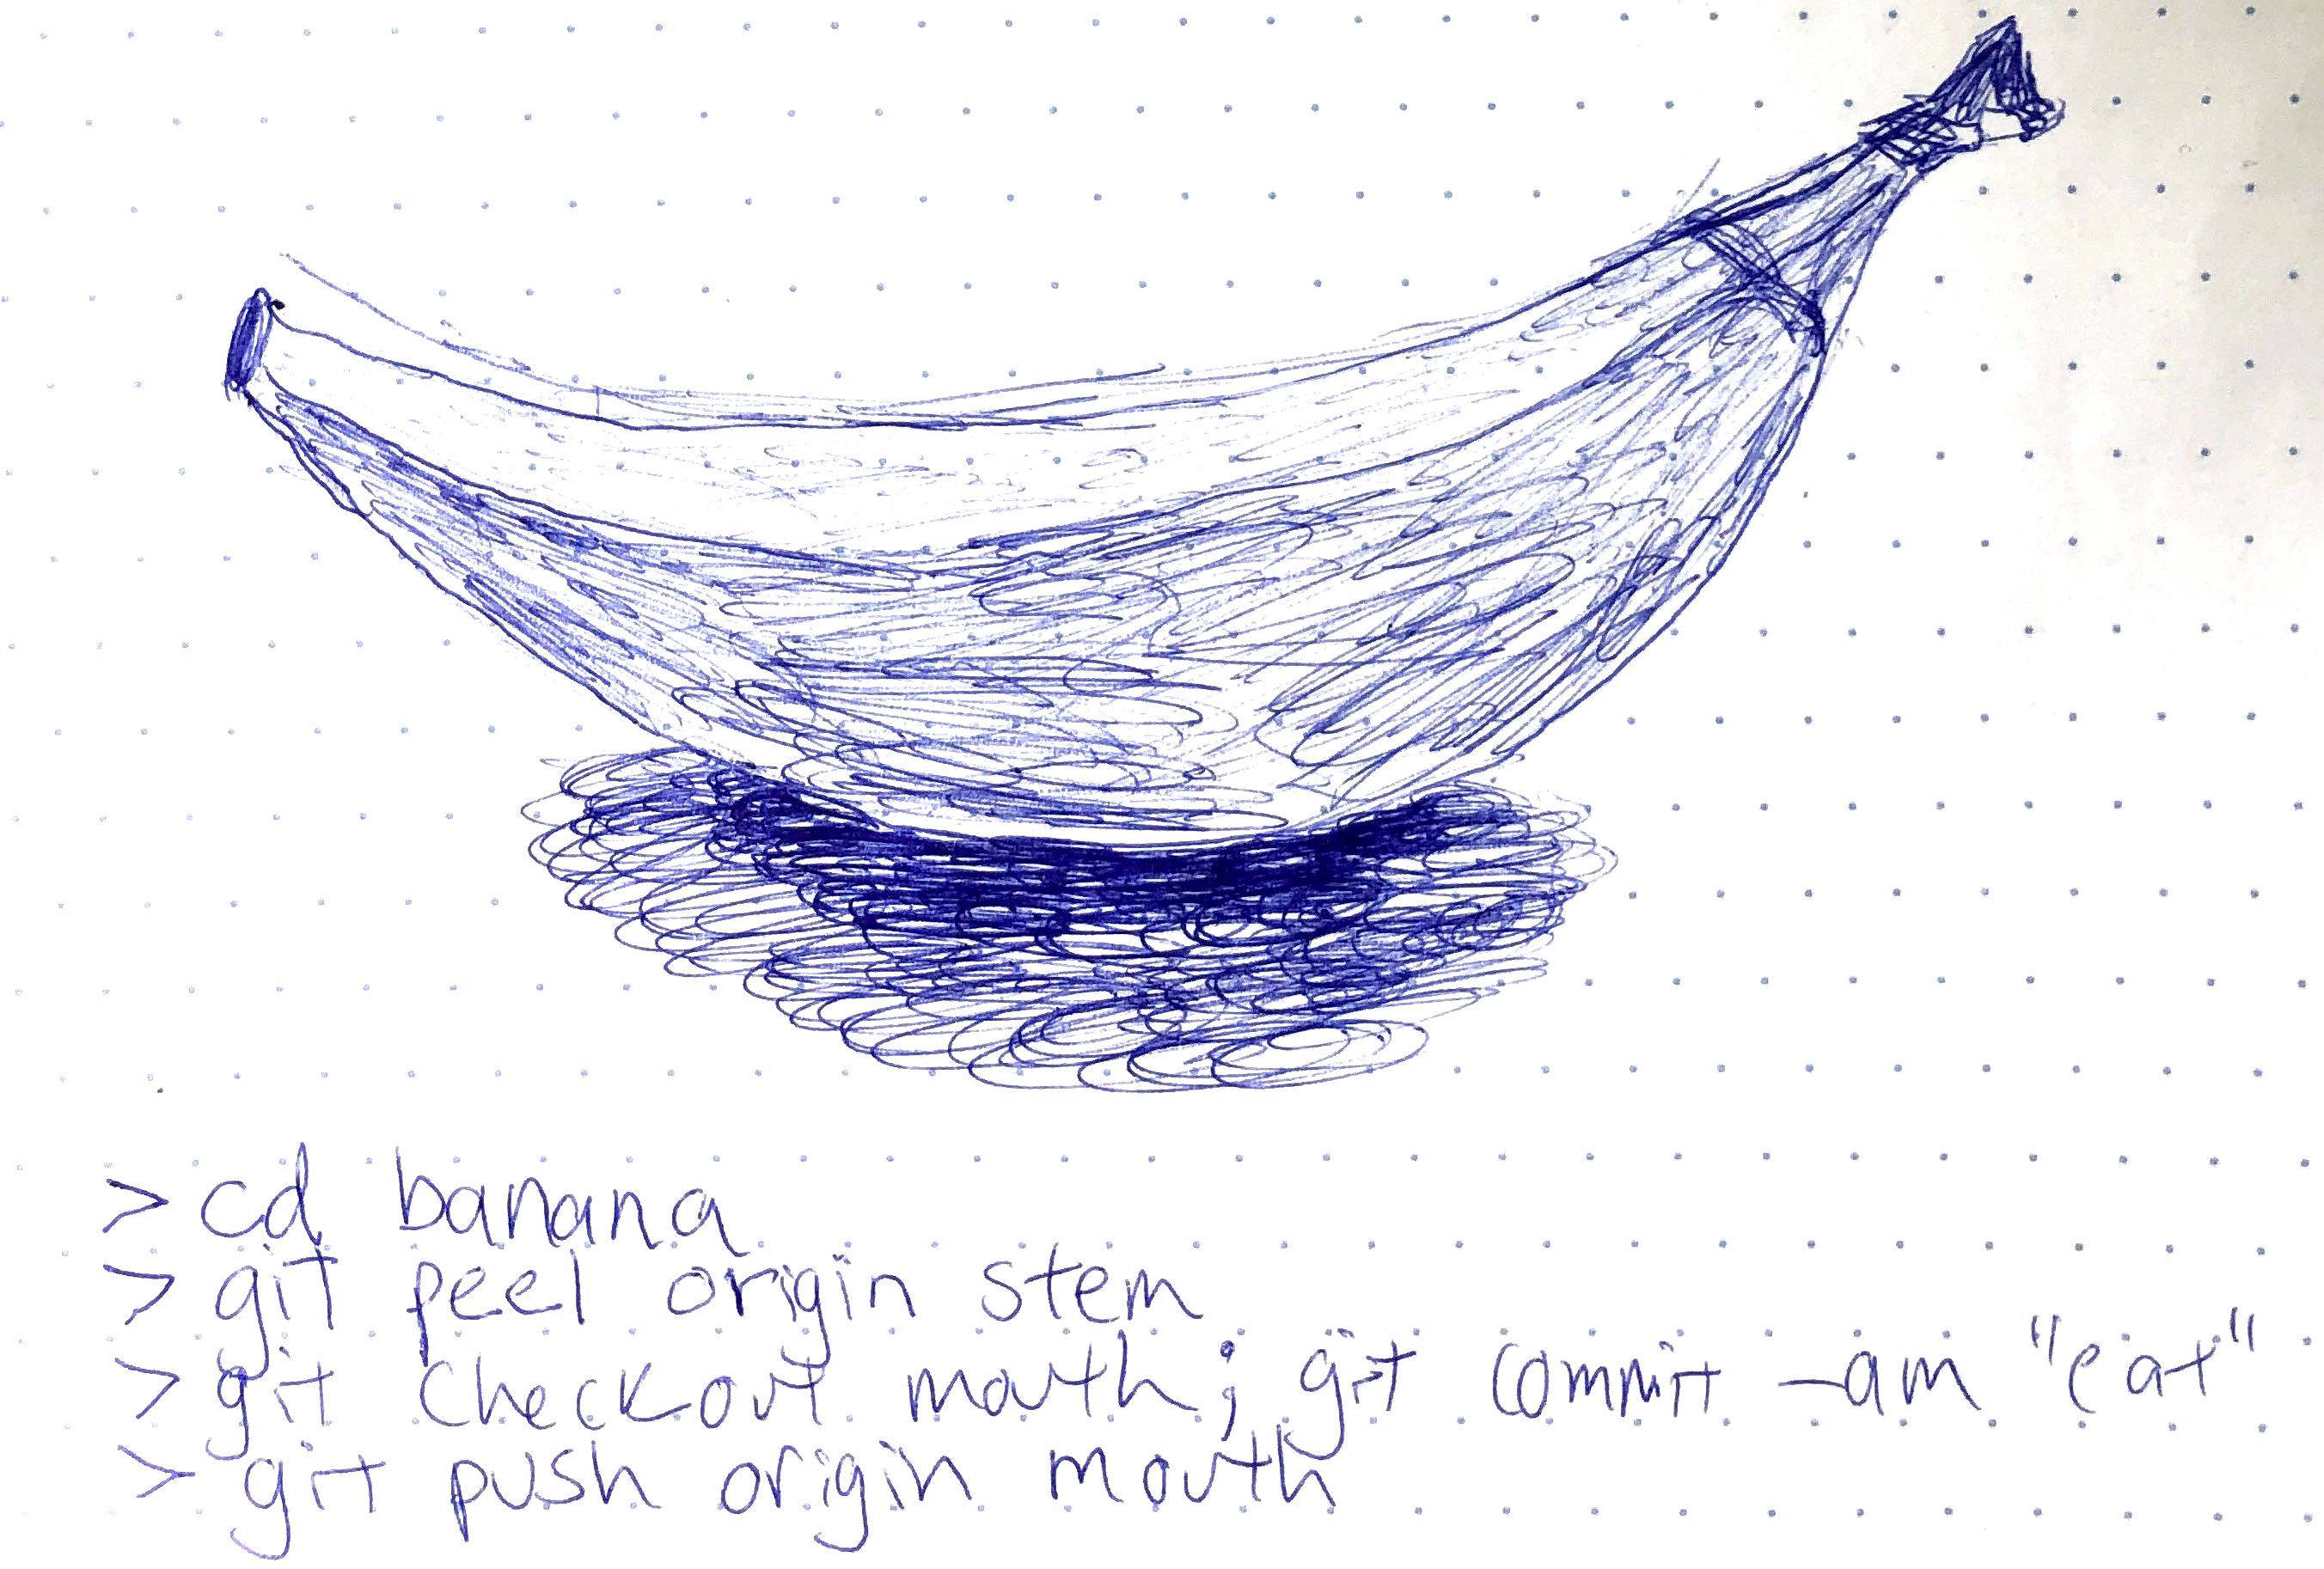 > cd banana
> git peel origin stem
> git checkout mouth; git commit -am "eat"
> git push origin mouth